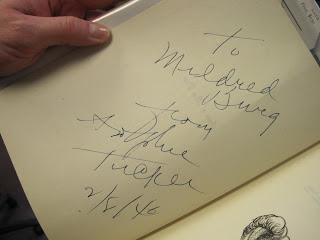 To
Mildred
Burg
from
Sophie
Tucker
2/8/46